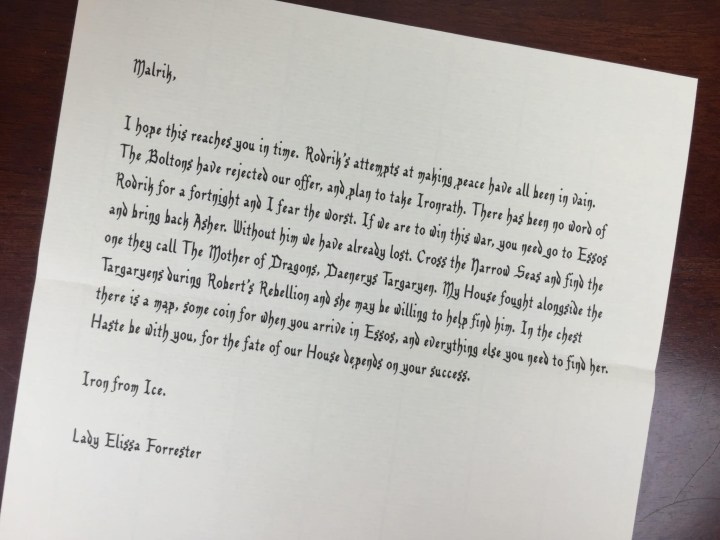 Malrik,
I hope this reaches you in time. Rodrik's attempts at making peace have all been in vain.
The Boltons have rejected our offer, and plan to take Ironrath. There has been no word of
Rodrik for a fortnight and I fear the worst. If we are to win this war, you need go to Essos
and bring back Asher. Without him we have already lost. Cross the Narrow Seas and find the
one they call The Mother of Dragons, Daenerys Targaryen. My House fought alongside the
Targaryens during Robert's Rebellion and she may be willing to help find him. In the chest
there is a map, some coin for when you arrive in Essos, and everything else you need to find her.
Haste be with you, for the fate of our House depends on your success.
Iron from Ice.
Lady Elissa Forrester